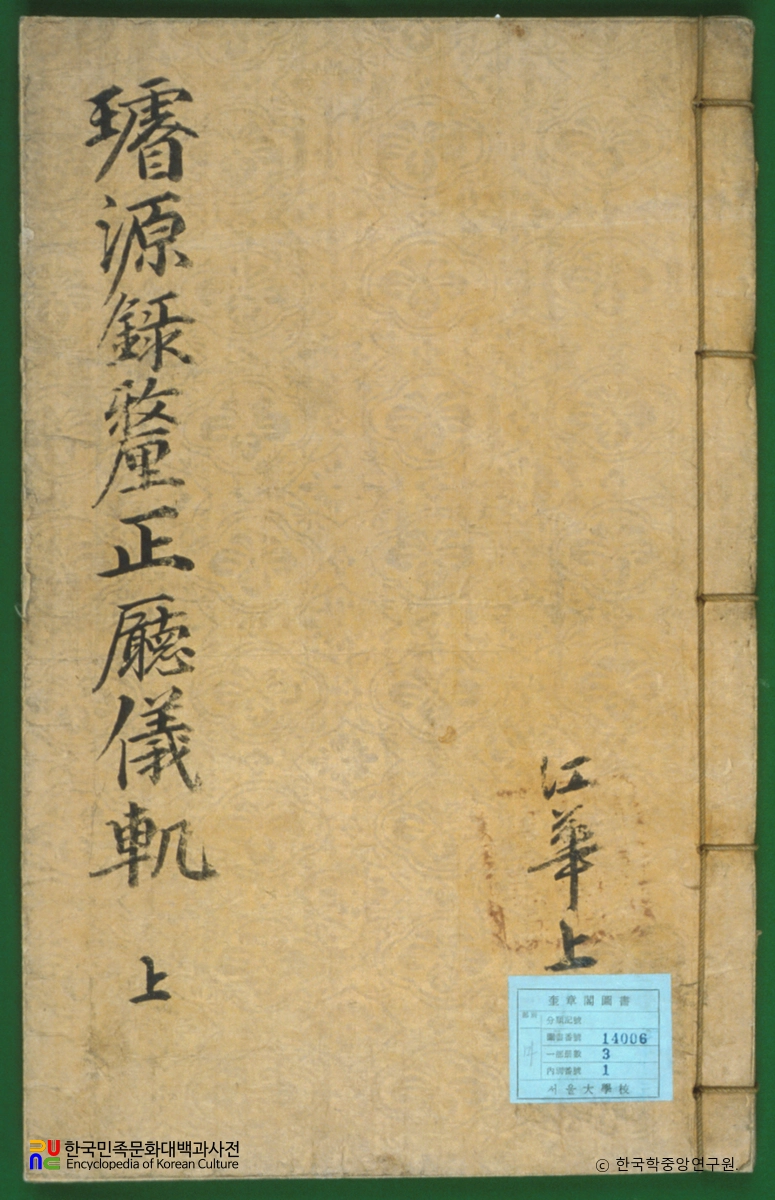 璿源錄釐正廳儀軌 上
江華上
奎章閣圖書
分類記號
圖書番號 14006
一部冊數 3
內冊番號 1
서울大學校
한국민족문화대백과사전
Encyclopedia of Korean Culture
© 한국학중앙연구원